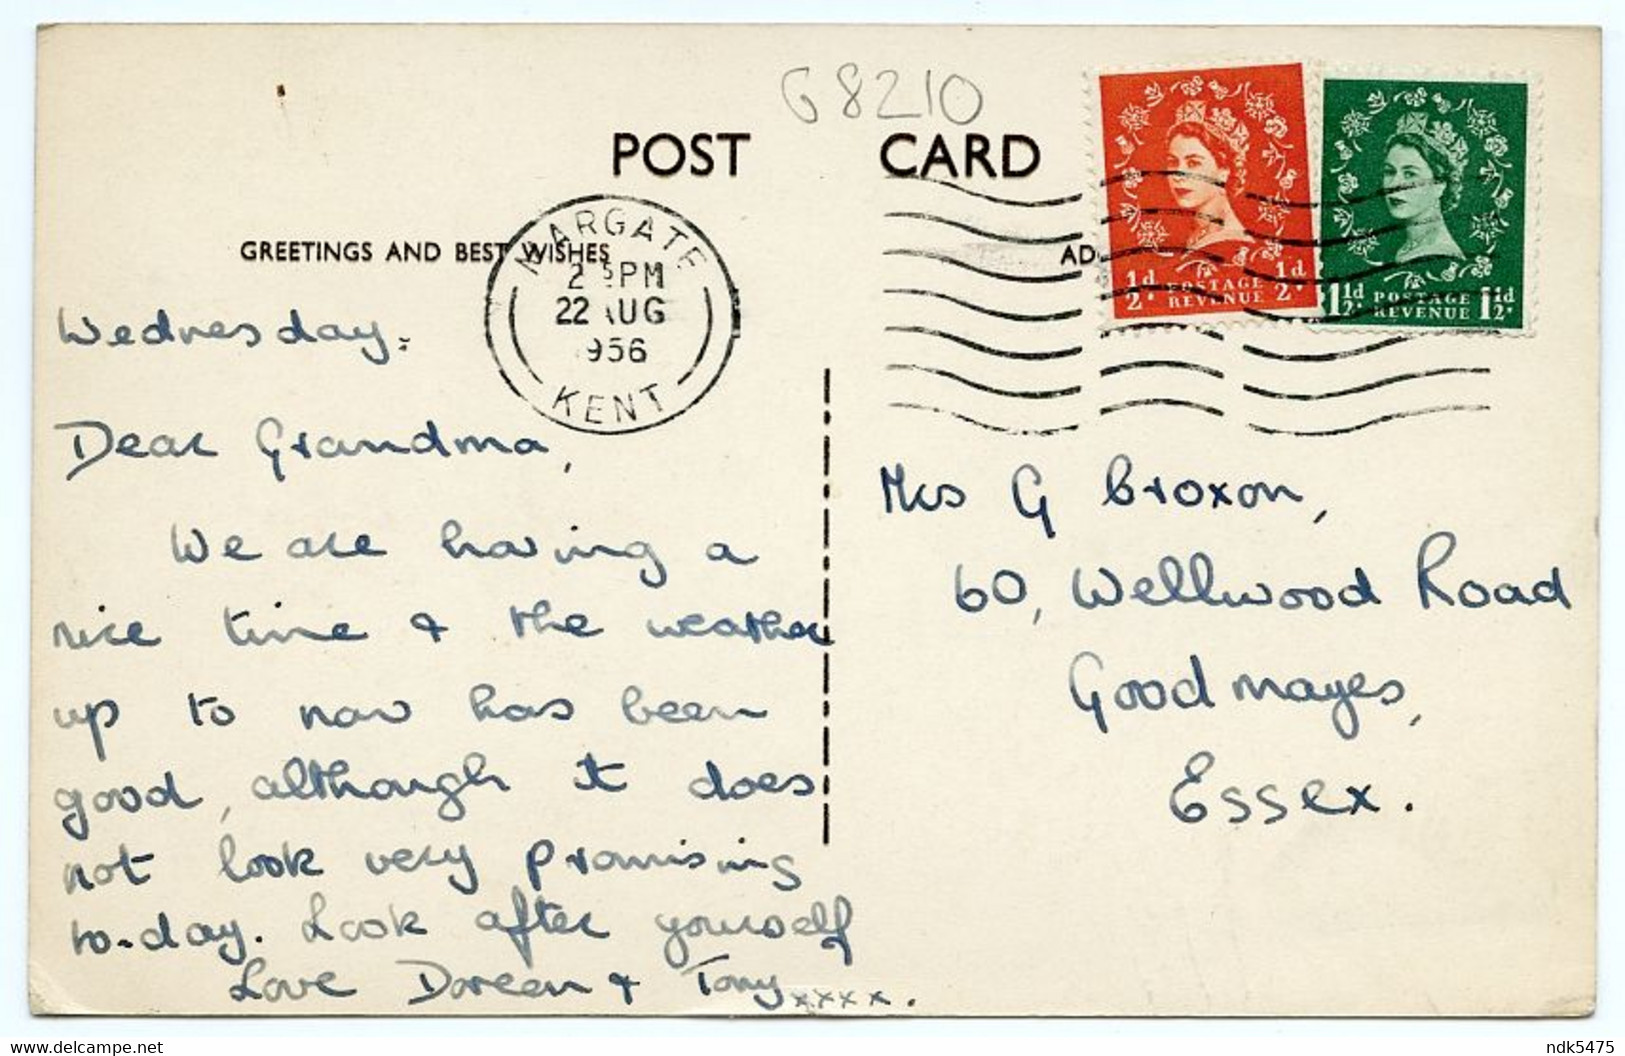 G8210
POST CARD
GREETINGS AND BEST WISHES
AD
MARGATE
PM
22 AUG
1956
KENT
1/2d. 1/2d.
POSTAGE
REVENUE
1 1/2d. 1 1/2d.
POSTAGE
REVENUE
Wednesday.
Dear Grandma,
We are having a
nice time & the weather
up to now has been
good, although it does
not look very promising
to-day. Look after yourself
Love Doreen & Tony xxxx.
Mrs G Broxon,
60, Wellwood Road
Goodmayes,
Essex.
delcampe.net
ndk5475